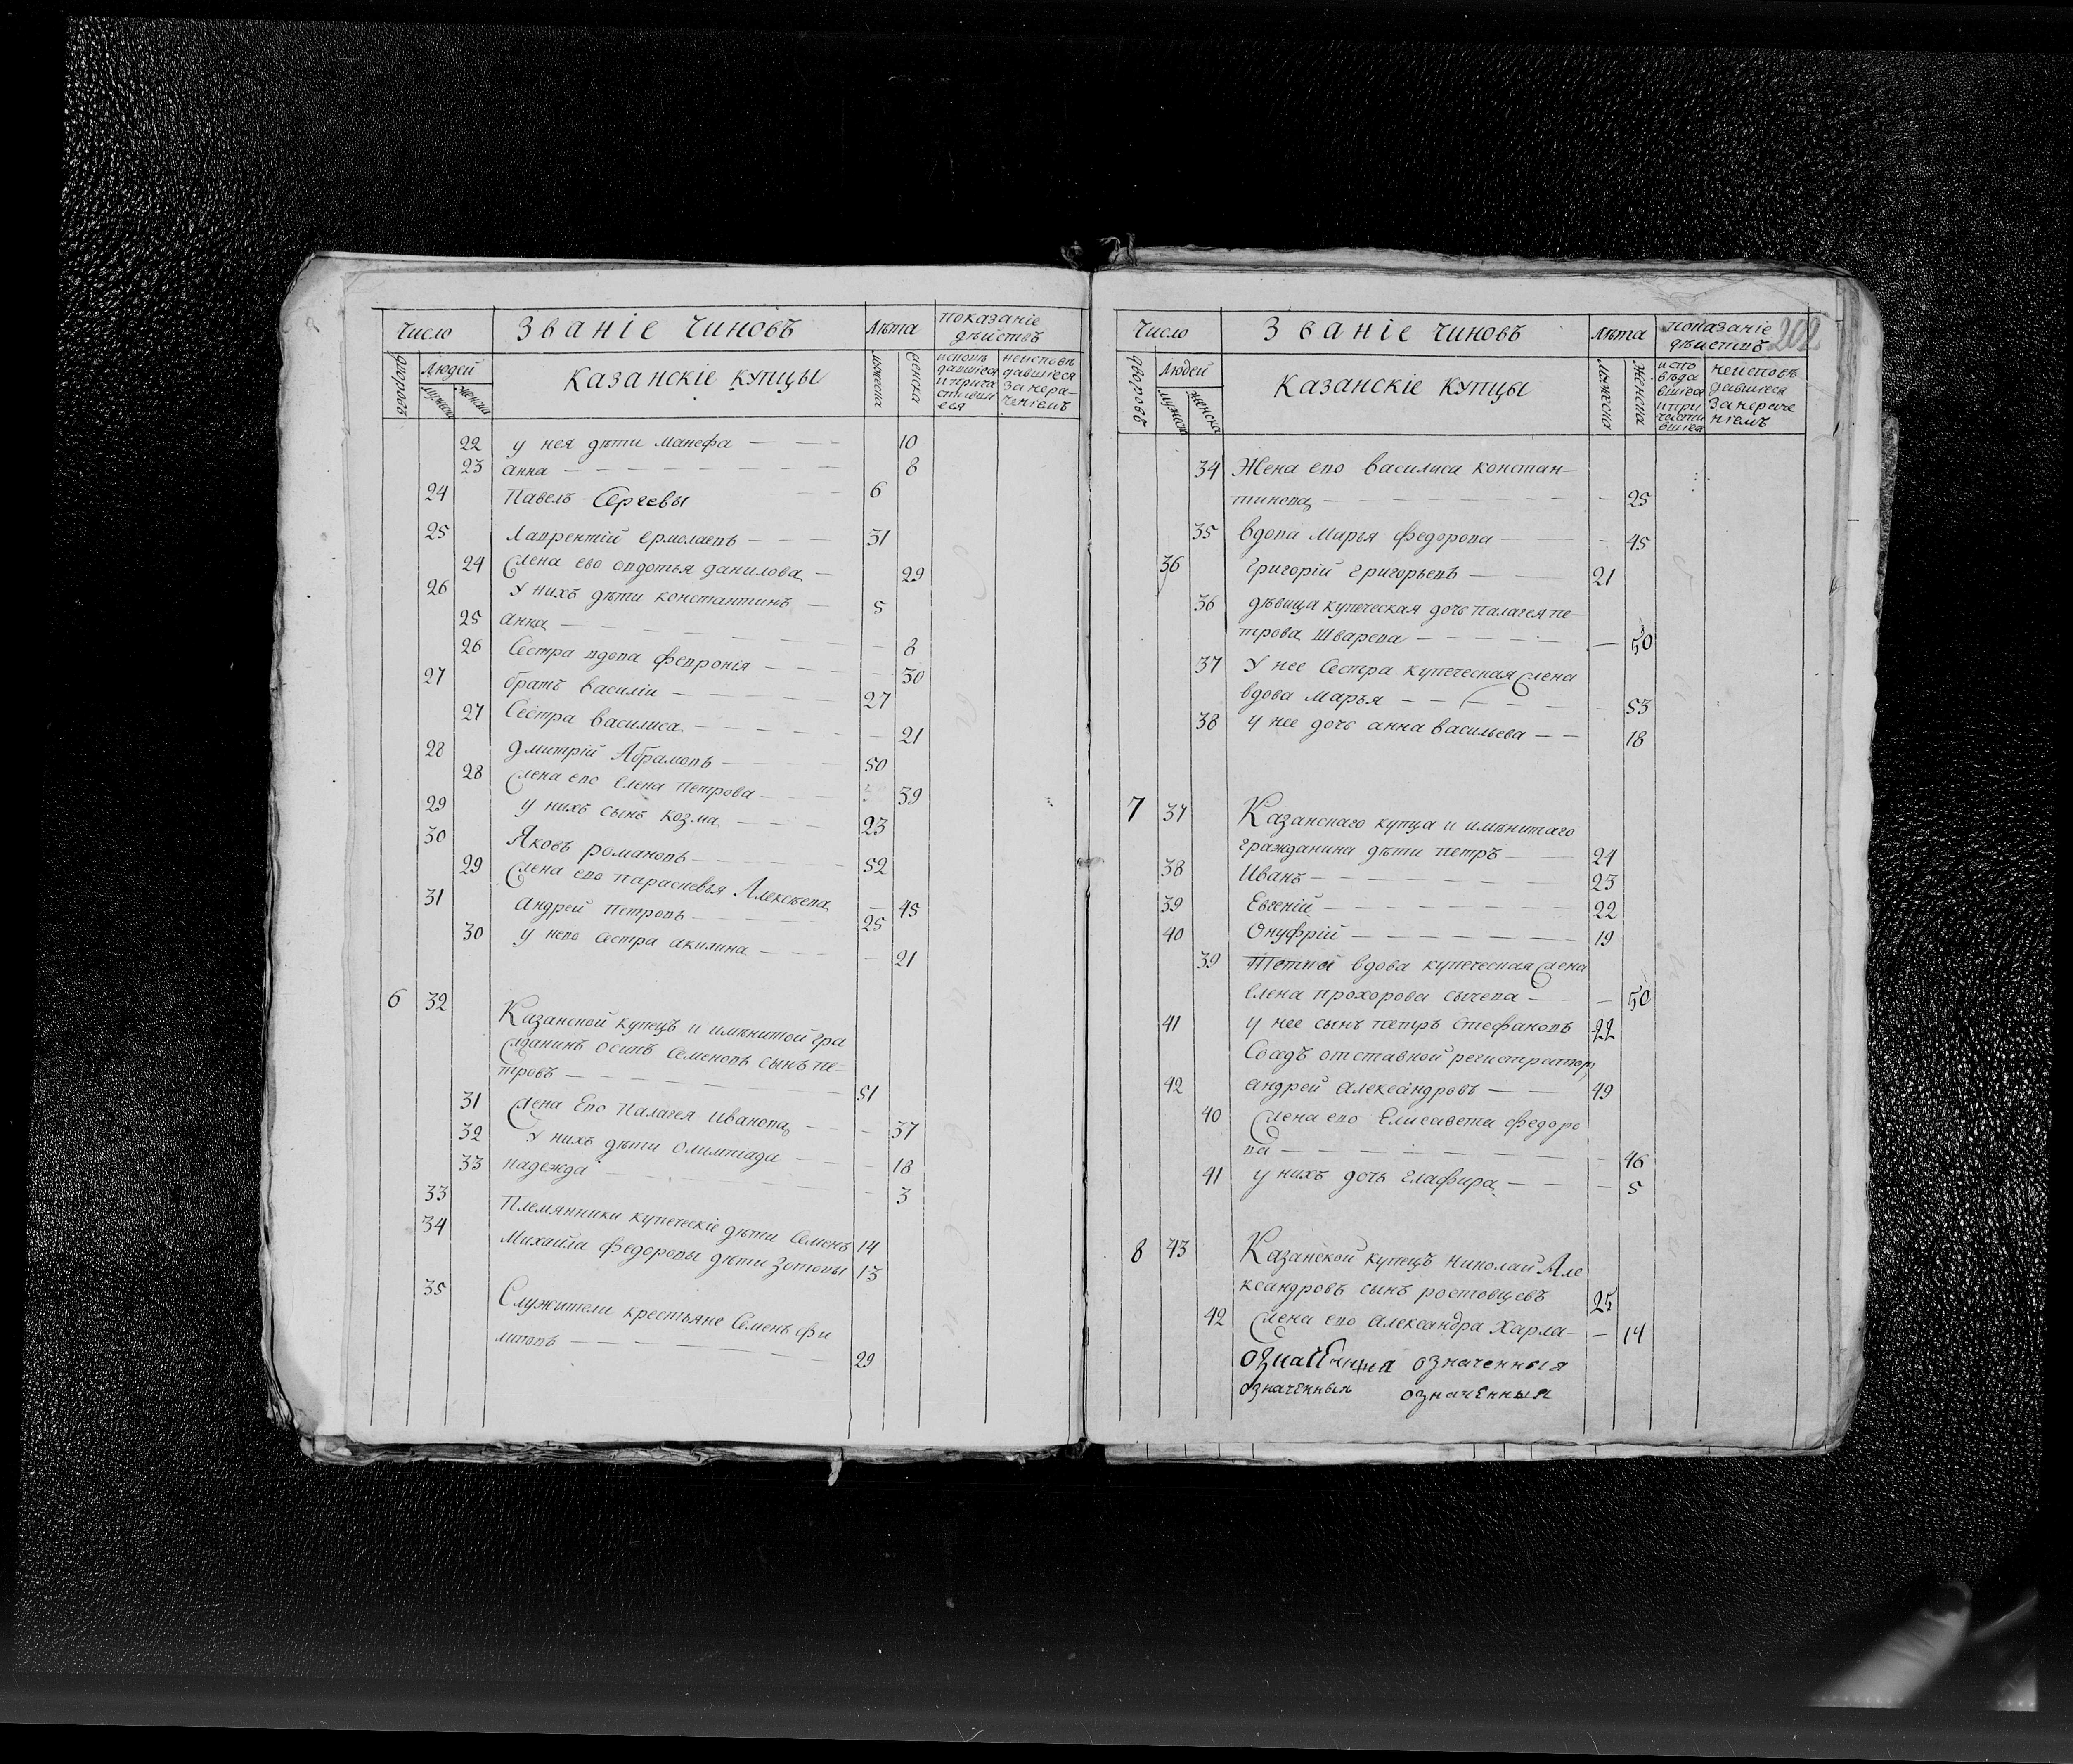 Число Званіе чиновъ Лѣта показаніе дѣйствъ
дворовъ Людей мужска женска Казанскіе купцы мужеска женска исповѣдавшіеся и причастившиеся неисповѣдавшіеся за нерачениемъ
22 у нея дѣти Манефа 10
23 анна 8
24 Павелъ Сергѣевы 6
25 Лаврентій ермолаевъ 31
24 Жена ево овдотья данилова 29
26 У нихъ дѣти константинъ 5
25 анна 8
26 Сестра вдова февронія 30
27 братъ василіи 27
27 Сестра василиса 21
28 дмитрій Абрамовъ 50
28 Жена ево елена Петрова 39
29 у нихъ сынъ козма 23
30 Яковъ романовъ 52
29 Жена ево парасковья Алексѣева 45
31 андрей петровъ 25
30 у нево сестра акилина 21
6 32 Казанской купецъ и имѣнитой гра
жданинъ осипъ Семеновъ сынъ пе-
тровъ 51
31 Жена Ево Палагея Иванова 37
32 У нихъ дѣти олимпиада 18
33 надежда 3
33 Племянники купеческіе дѣти Семенъ 14
34 Михаила федоровы дѣти Зотовы 13
35 Служители крестьяне Семенъ фи
липовъ 29
202
Число Званіе чиновъ Лѣта показаніе дѣиствъ
дворовъ Людей мужска женска Казанскіе купцы мужеска женска исповѣдавшіеся и причастившіеся неисповѣдавшиеся за нерачениемъ
34 Жена ево василиса констан-
тинова 25
35 вдова Марья федорова 45
36 григорій григорьевъ 21
36 дѣвица купеческая дочь палагея пе-
трова Шварева 50
37 У нее Сестра купеческая жена
вдова марья 53
38 у нее дочь анна васильева 18
7 37 Казанскаго купца и имѣнитаго
гражданина дѣти петръ 24
38 Иванъ 23
39 Евгеній 22
40 Онуфрій 19
39 вдова купеческая жена
елена прохорова сычева 50
41 у нее сынъ петръ Стефановъ 22
отставной регистраторъ
42 андрей александровъ 49
40 Жена ево Елисавета федоро
ва 46
41 у нихъ дочь глафира 5
8 43 Казанской купецъ николай Але
ксандровъ сынъ ростовцевъ 25
42 Жена ево александра Харла- 14
означенныя означенныя
означенныя означенныя